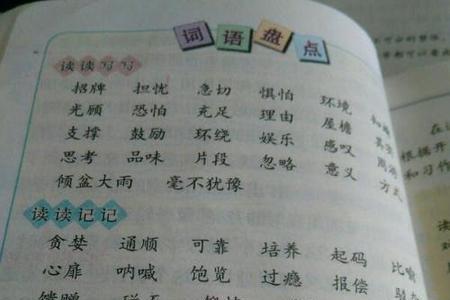 词语盘点
读读写写
招牌 担忧 急切 惧怕 环境
光顾 恐怕 充足 理由 屋檐
支撑 鼓励 环绕 娱乐 感叹
思考 品味 片段 忽略 意义 方式
倾盆大雨 毫不犹豫
读读记记
贪婪 通顺 可靠 培养 起码 比喻
心扉 呐喊 饱览 过瘾 报偿
馈赠